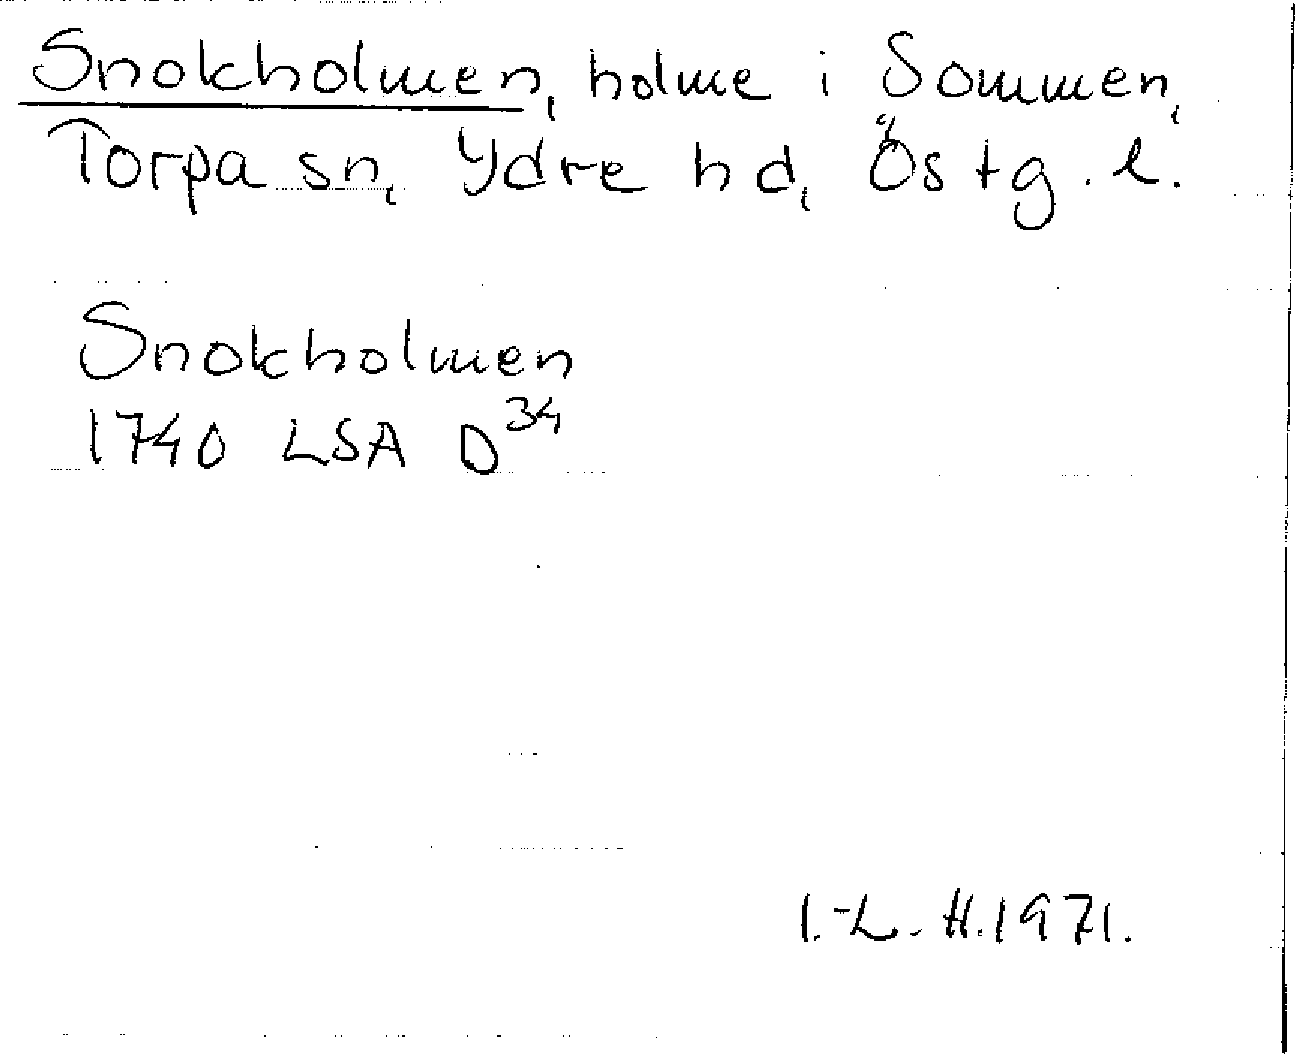 Snokholmen, holme i Sommen,
Torpa sn, Ydre hd, Östg. l.
Snokholmen
1740 LSA D34
I.-L. H. 1971.